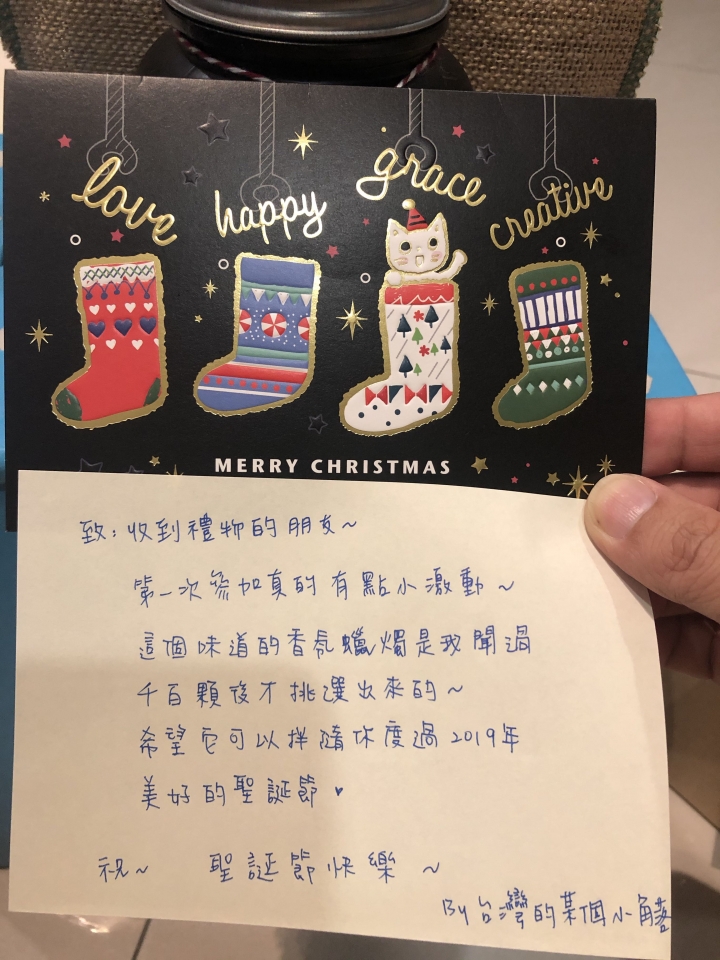 love
happy
grace
creative
MERRY CHRISTMAS
致：收到禮物的朋友~
第一次參加真的有點小激動~
這個味道的香氛蠟燭是我聞過
千百顆後才挑選出來的~
希望它可以拌隨你度過2019年
美好的聖誕節♥
祝~ 聖誕節快樂~
By台灣的某個小角落